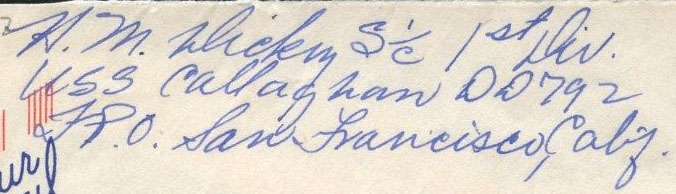 H. M. Dickey S1/c 1st Div.
USS Callaghan DD792
F.P.O. San Francisco, Calif.